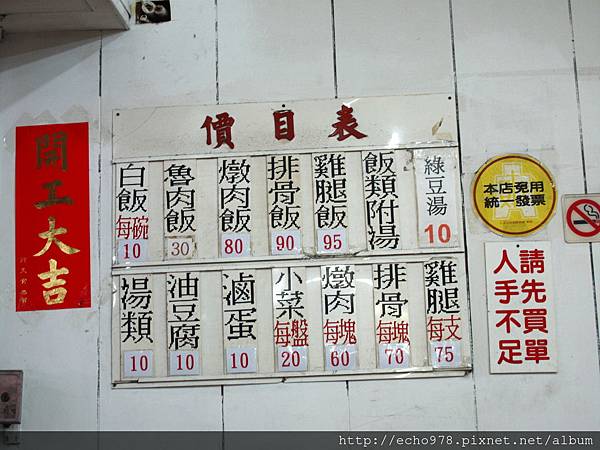 價目表
白飯 每碗 10
魯肉飯 30
燉肉飯 80
排骨飯 90
雞腿飯 95
飯類附湯
綠豆湯 10
湯類 10
油豆腐 10
滷蛋 10
小菜 每盤 20
燉肉 每塊 60
排骨 每塊 70
雞腿 每支 75
開工大吉
本店免用
統一發票
請先買單
人手不足
http://echo978.pixnet.net/album